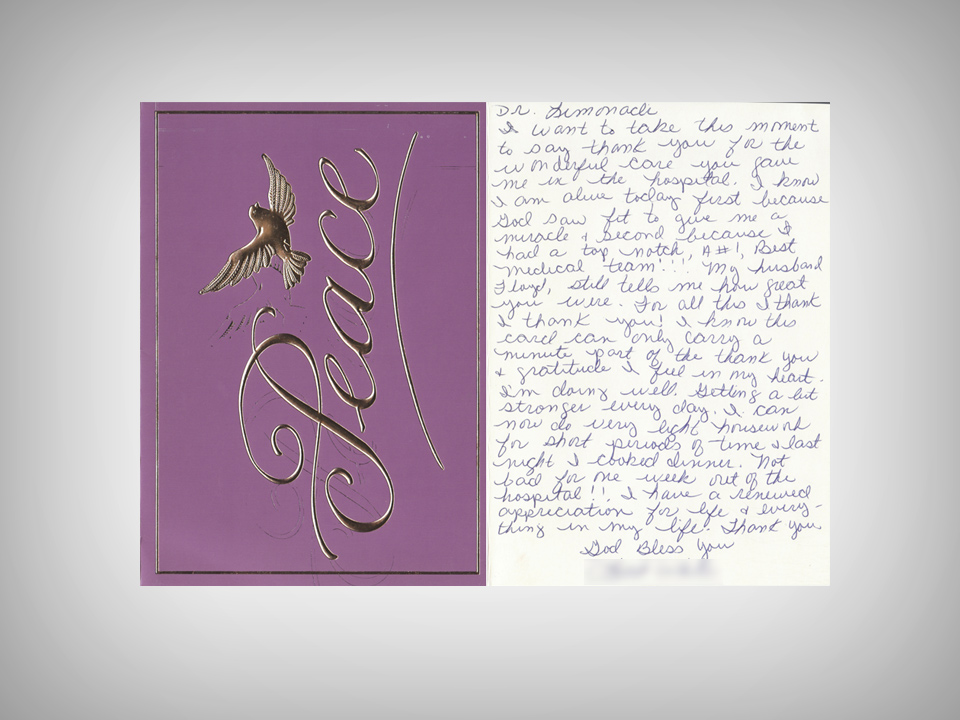 Peace
Dr. Simonade
I want to take this moment
to say thank you for the
wonderful care you gave
me in the hospital. I know
I am alive today first because
God saw fit to give me a
miracle & second because I
had a top notch, A#1, Best
medical team!!! My husband
Floyd, still tells me how great
you were. For all this I thank
I thank you! I know this
card can only carry a
minute part of the thank you
& gratitude I feel in my heart.
I'm doing well. Getting a bit
stronger every day. I can
now do very light housework
for short periods of time & last
night I cooked dinner. Not
bad for one week out of the
hospital!! I have a renewed
appreciation for life & every-
thing in my life. Thank you
God Bless You